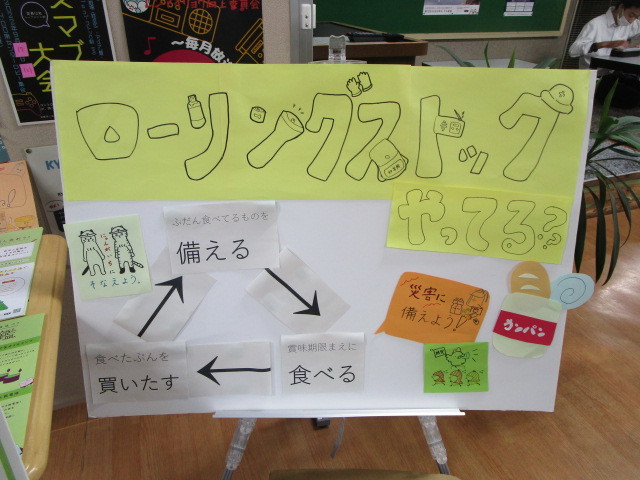 スマブ
大会
〜毎月放
ローリングストック
やってる??
ふだん食べてるものを
備える
そなえよう。
災害に
備えよう
カンパン
食べたぶんを
買いたす
賞味期限まえに
食べる